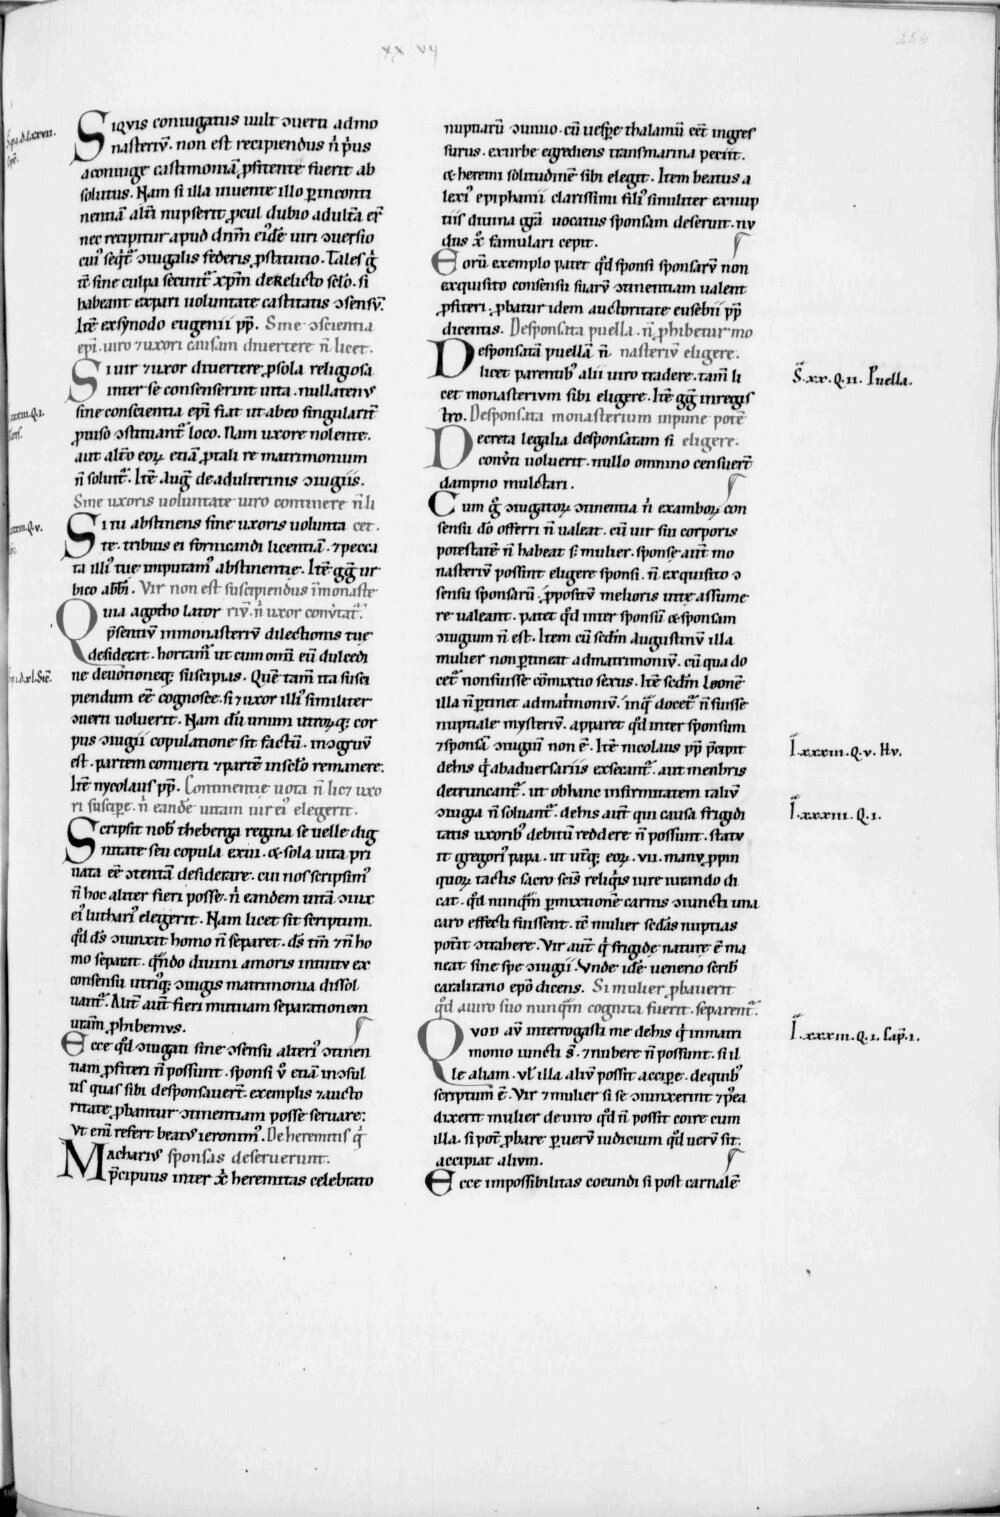 xx vij
254
Siqvis coniugatus uult ↄuerti admo
nasteriū. non est recipiendus n̄ p̄us
aconiuge castimoniā ꝓfitente fuerit ab
solutus. Nam si illa uiuente illo ꝑinconti
nentiā alt̄i nupserit ꝓcul dubio adult̄a er̄
nec recipitur apud dn̄m ei᷒dē uiri ↄuersio
cui᷒ seq̄t᷑ ↄiugalis federis ꝓstitutio. Tales g̊
tc̄ sine culpa secunt᷑ xp̄m derelicto sclo. si
habeant expari uoluntate castitatis ↄsensū.
Itē exsynodo eugenii pp̄. Sine ↄscientia
ep̄i uiro ⁊uxori causam diuertere n̄ licet.
Si uir ⁊uxor diuertere ꝓsola religiosa
inter se consenserint uita. nullatenus
sine conscientia ep̄i fiat ut abeo singularit̄
ꝓuiso ↄstituant᷑ loco. Nam uxore nolente.
aut alt̄o eoꝝ etiā ꝓtali re matrimonium
n̄ soluit᷑. Itē Aug᷑ de adulterinis ↄiugiis.
Sine uxoris uoluntate uiro continere n̄ li
Si tu abstinens sine uxoris volunta cet.
te. tribuis ei fornicandi licentiā. ⁊pecca
ta illi᷒ tue imputam᷒ abstinentie. Itē gg̅ ur
bico abb̄i. Vir non est suscipiendus īmonaste
Quia agotho lator riū. n̄ uxor conūtat᷑.
p̄sentiū inmonasteriū dilectionis tue
desiderat. hortam̄ ut cum omi̅ eū dulcedi
ne deuotioneqꝫ suscipias. Quē tam̄ ita susci
piendum eē cognosce. si ⁊uxor illi᷒ similiter
ↄuerti uoluerit. Nam dū unum utroꝝqꝫ cor
pus ↄiugii copulatione sit factū. incↄgruū
est. partem conuerti ⁊partē insclo remanere.
Itē nycolaus pp̄. Continentie uota n̄ licꝫ uxo
ri suscipe. n̄ eandē uitam uir ei᷒ elegerit.
Scripsit nob̄ theberga regina se uelle dig
nitate seu copula exui. & sola uita pri
uata eē ↄtentā desiderare. cui nos scripsim᷒
n̄ hoc aliter fieri posse. n̄ eandem uitā ↄiux
ei᷒ luthari᷒ elegerit. Nam licet sit scriptum.
qd̊ ds̄ ↄiunxit homo n̄ separet. ds̄ tm̄ ⁊n̄ ho
mo separat. qn̄do diuini amoris intuitu ex
consensu utriqꝫ ↄiugis matrimonia dissol
uant᷑. Aut̄ aut̄ fieri mutuam separationem
utam̄ ꝓhibemus.
Ecce qd̊ ↄiugati sine ↄsensu alteri᷒ ↄtinen
tiam ꝓfiteri n̄ possunt. sponsi ū etiā incↄsul
tis quas sibi desponsauert̄. exemplis ⁊aucto
ritate ꝓbantur ↄtinentiam posse seruare.
Vt em̄ refert beatus ieronim᷒. De heremitis q̄
Macharius sponsas deseruerunt.
p̄cipuus inter x̄ heremitas celebrato
nuptiarū ↄuiuio. cū uespe thalamū eēt ingres
surus. exurbe egrediens transmarina petiit.
& heremi solitudinē sibi elegit. Item beatus a
lexi᷒ epiphanii clarissimi fili᷒ similiter exnup
tiis diuina gr̄a uocatus sponsam deseruit. nu
dus x̄ famulari cepit.
Eorū exemplo patet qd̊ sponsi sponsarū non
exquisito consensu suarū ↄtinentiam ualent
ꝓfiteri. ꝓbatur idem auctoritate eusebii pp̄
dicentis. Desponsata puella. n̄ ꝓhibetur mo
Desponsatā puellā n̄ nasteriū eligere.
licet parentib᷒ alii uiro tradere. tam̄ li
cet monasterium sibi eligere. Itē gg̅ inregis
tro. Desponsata monasterium inpune potē
Decreta legalia desponsatam si eligere.
conūti uoluerit. nullo omnino censuert̄
dampno mulctari.
Cum g̊ ↄiugatoꝝ ↄtinentia n̄ examboꝝ con
sensu dō offerri n̄ ualeat. cū uir sui corporis
potestatē n̄ habeat s; mulier. sponse aut̄ mo
nasteriū possint eligere sponsi. n̄ exquisito ↄ
sensu sponsarū. ꝓpositū melioris uite assume
re ualeant. patet qd̊ inter sponsū & sponsam
ↄiugium n̄ est. Item cū scdm̄ Augustinū illa
mulier non ꝑtineat admatrimoniū. cū qua do
cet᷑ nonfuisse cōmixtio sexus. Itē scdm̄ leonē
illa n̄ ꝑtinet admat̄moniū. inq̄ docet᷑ n̄ fuisse
nuptiale mysteriū. apparet qd̊ inter sponsum
⁊sponsā ↄiugiū non ē. Itē nicolaus pp̄ p̄cipit
dehis q̄ abaduersariis exsecant᷑. aut menbris
detruncant᷑. ut obhanc infirmitatem taliū
ↄiugia n̄ soluant᷑. dehis aut̄ qui causa frigidi
tatis uxorib᷒ debitū reddere n̄ possunt. statu
it gregori᷒ papa. ut utiqꝫ eoꝝ. vii. manu ꝓpin
quoꝝ tactis sacro scis̄ reliq̄is iure iurando di
cat. qd̊ nunq̄m ꝑmixtionē carnis ↄiuncti una
caro effecti fuissent. tc̄ mulier secdas̄ nuptias
pot̄it ↄtrahere. Vir aut̄ q̄ frigide nature ē ma
neat sine spe ↄiugii. Vnde idē uenerio scrib̄
caralitano epō dicens. Si mulier ꝓbauerit
qd̊ auiro suo nunq̄m cognita fuerit. separent᷑.
Quod au̅ interrogasti me dehis q̄ inmatri
monio iuncti s̄. ⁊nubere n̄ possunt. si il
le aliam. ul̄ illa aliū possit accipe. de quib᷒
scriptum ē. Vir ⁊mulier si se ↄiunxerint ⁊p̄ea
dixerit mulier de uiro qd̊ n̄ possit coire cum
illa. si pot̄ ꝓbare ꝑuerū iudicium qd̊ uerū sit.
accipiat alium.
Ecce impossibilitas coeundi si post carnalē
S̄. xx. Q. ii. Puella.
I. xxxiii. Q. v. Hv.
I. xxxiii. Q. i.
I. xxxiii. Q. i. Cap̄. i.